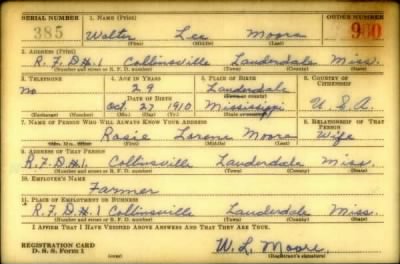 SERIAL NUMBER 1. NAME (Print) ORDER NUMBER
385 Walter Lee Moore 900
(First) (Middle) (Last)
2. ADDRESS (Print)
R.F.D.#.1 Collinsville Lauderdale Miss.
(Number and street or R. F. D. number) (Town) (County) (State)
3. TELEPHONE 4. AGE IN YEARS 5. PLACE OF BIRTH 6. COUNTRY OF CITIZENSHIP
No 29 Lauderdale
DATE OF BIRTH (Town or county)
Oct 27 1910 Mississippi U.S.A.
(Exchange) (Number) (Mo.) (Day) (Yr.) (State or country)
7. NAME OF PERSON WHO WILL ALWAYS KNOW YOUR ADDRESS 8. RELATIONSHIP OF THAT PERSON
Rosie Lorene Moore Wife
9. ADDRESS OF THAT PERSON
R.F.D.#.1 Collinsville Lauderdale Miss.
(Number and street or R. F. D. number) (Town) (County) (State)
10. EMPLOYER'S NAME
Farmer
11. PLACE OF EMPLOYMENT OR BUSINESS
R.F.D.#.1 Collinsville Lauderdale Miss.
(Number and street or R. F. D. number) (Town) (County) (State)
I AFFIRM THAT I HAVE VERIFIED ABOVE ANSWERS AND THAT THEY ARE TRUE.
REGISTRATION CARD
D. S. S. Form 1 (over) W. L. Moore
(Registrant's signature)